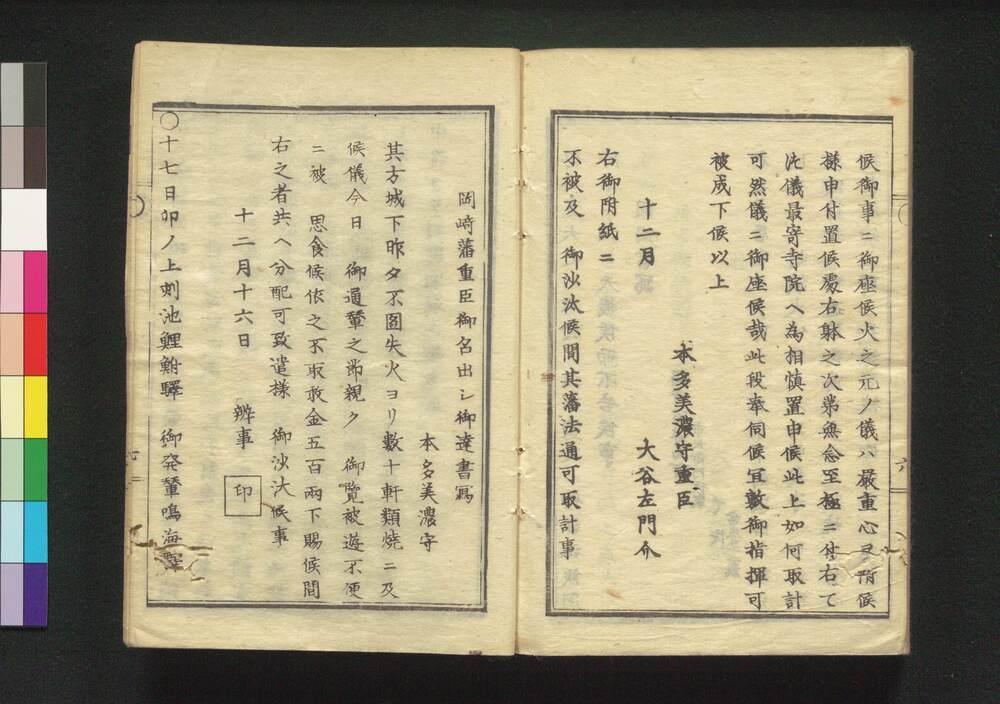 候御事ニ御座候火之元ノ儀ハ嚴重心ヲ附候
様申付置候處右躰之次第無念至極ニ付右ニて
沙儀最寄寺院ヘ為相慎置申候此上如何取計
可然儀ニ御座候哉此段奉伺候宜敷御指揮可
被成下候以上
本多美濃守重臣
十二月 大谷左門介
右御附紙ニ
不被及 御沙汰候間其藩法通可取計事
岡﨑藩重臣御名出シ御達書寫
本多美濃守
其方城下昨夕不圖失火ヨリ數十軒類焼ニ及
候儀今日 御通輦之節親ク 御覧被遊不便
ニ被 思食候依之不取敢金五百両下賜候間
右之者共ヘ分配可致遣様 御沙汰候事
十二月十六日 辨事 印
〇十七日卯ノ上刻池鯉鮒驛 御発輦鳴海驛